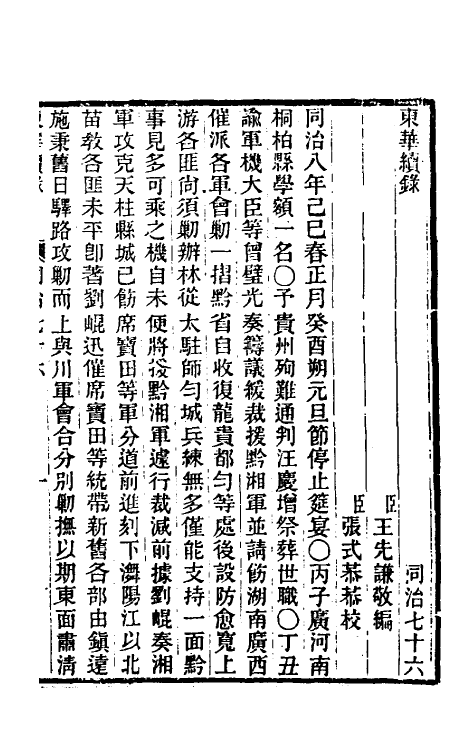 東華續錄　同治七十六
臣王先謙敬編
臣張式恭恭校
同治八年己巳春正月癸酉朔元旦節停止筵宴〇丙子廣河南
桐柏縣學額一名〇予貴州殉難通判汪慶增祭葬世職〇丁丑
諭軍機大臣等曾璧光奏籌議緩裁援黔湘軍並請飭湖南廣西
催派各軍會勦一摺黔省自收復龍貴都勻等處後設防愈寬上
游各匪尙須勦辦林從太駐師勻城兵練無多僅能支持一面黔
事見多可乘之機自未便將援黔湘軍遽行裁減前據劉崐奏湘
軍攻克天柱縣城已飭席寶田等軍分道前進刻下㵲陽江以北
苗敎各匪未平卽著劉崐迅催席寶田等統帶新舊各部由鎭遠
施秉舊日驛路攻勦而上與川軍會合分別勦撫以期東面肅淸